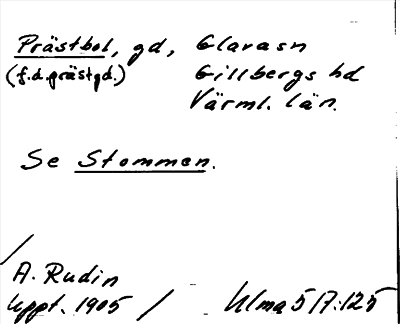 Prästbol, gd, Glavasn
(f.d. prästgd.) Gillbergs hd
Värml. län.
Se Stommen.
A. Rudin
Uppt. 1905 / Ulma 517:125